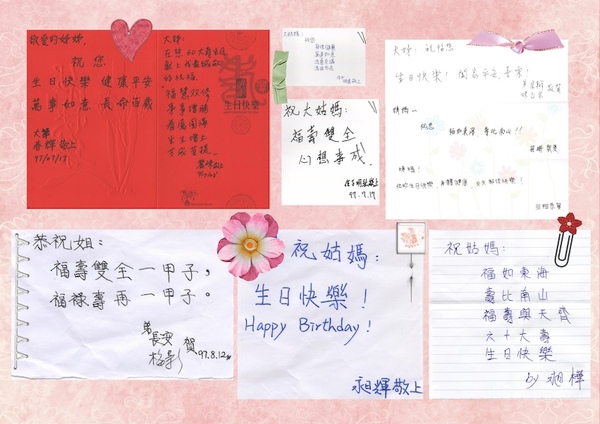 敬愛的姊姊,
祝您
生日快樂 健康平安
萬事如意 長命百歲
大弟
春輝敬上
大姊:
在您60大壽生日
獻上我最誠敬
的祝福
福慧双修
事事增勝
生日快樂
大姊: 祝福您
生日快樂! 闔家平安、喜樂!
敬賀
姨媽~
祝您 福如東海 壽比南山!!
敬賀
姨媽:
祝您生日快樂,身體健康,天天都很快樂!
祝大姑媽:
福壽雙全
心想事成!
敬上
恭祝姐:
福壽雙全一甲子,
福祿壽再一甲子。
弟
長安
賀
97.8.12
祝姑媽:
生日快樂!
Happy Birthday!
昶輝敬上
祝姑媽:
福如東海
壽比南山
福壽與天齊
六十大壽
生日快樂
by 昶樺